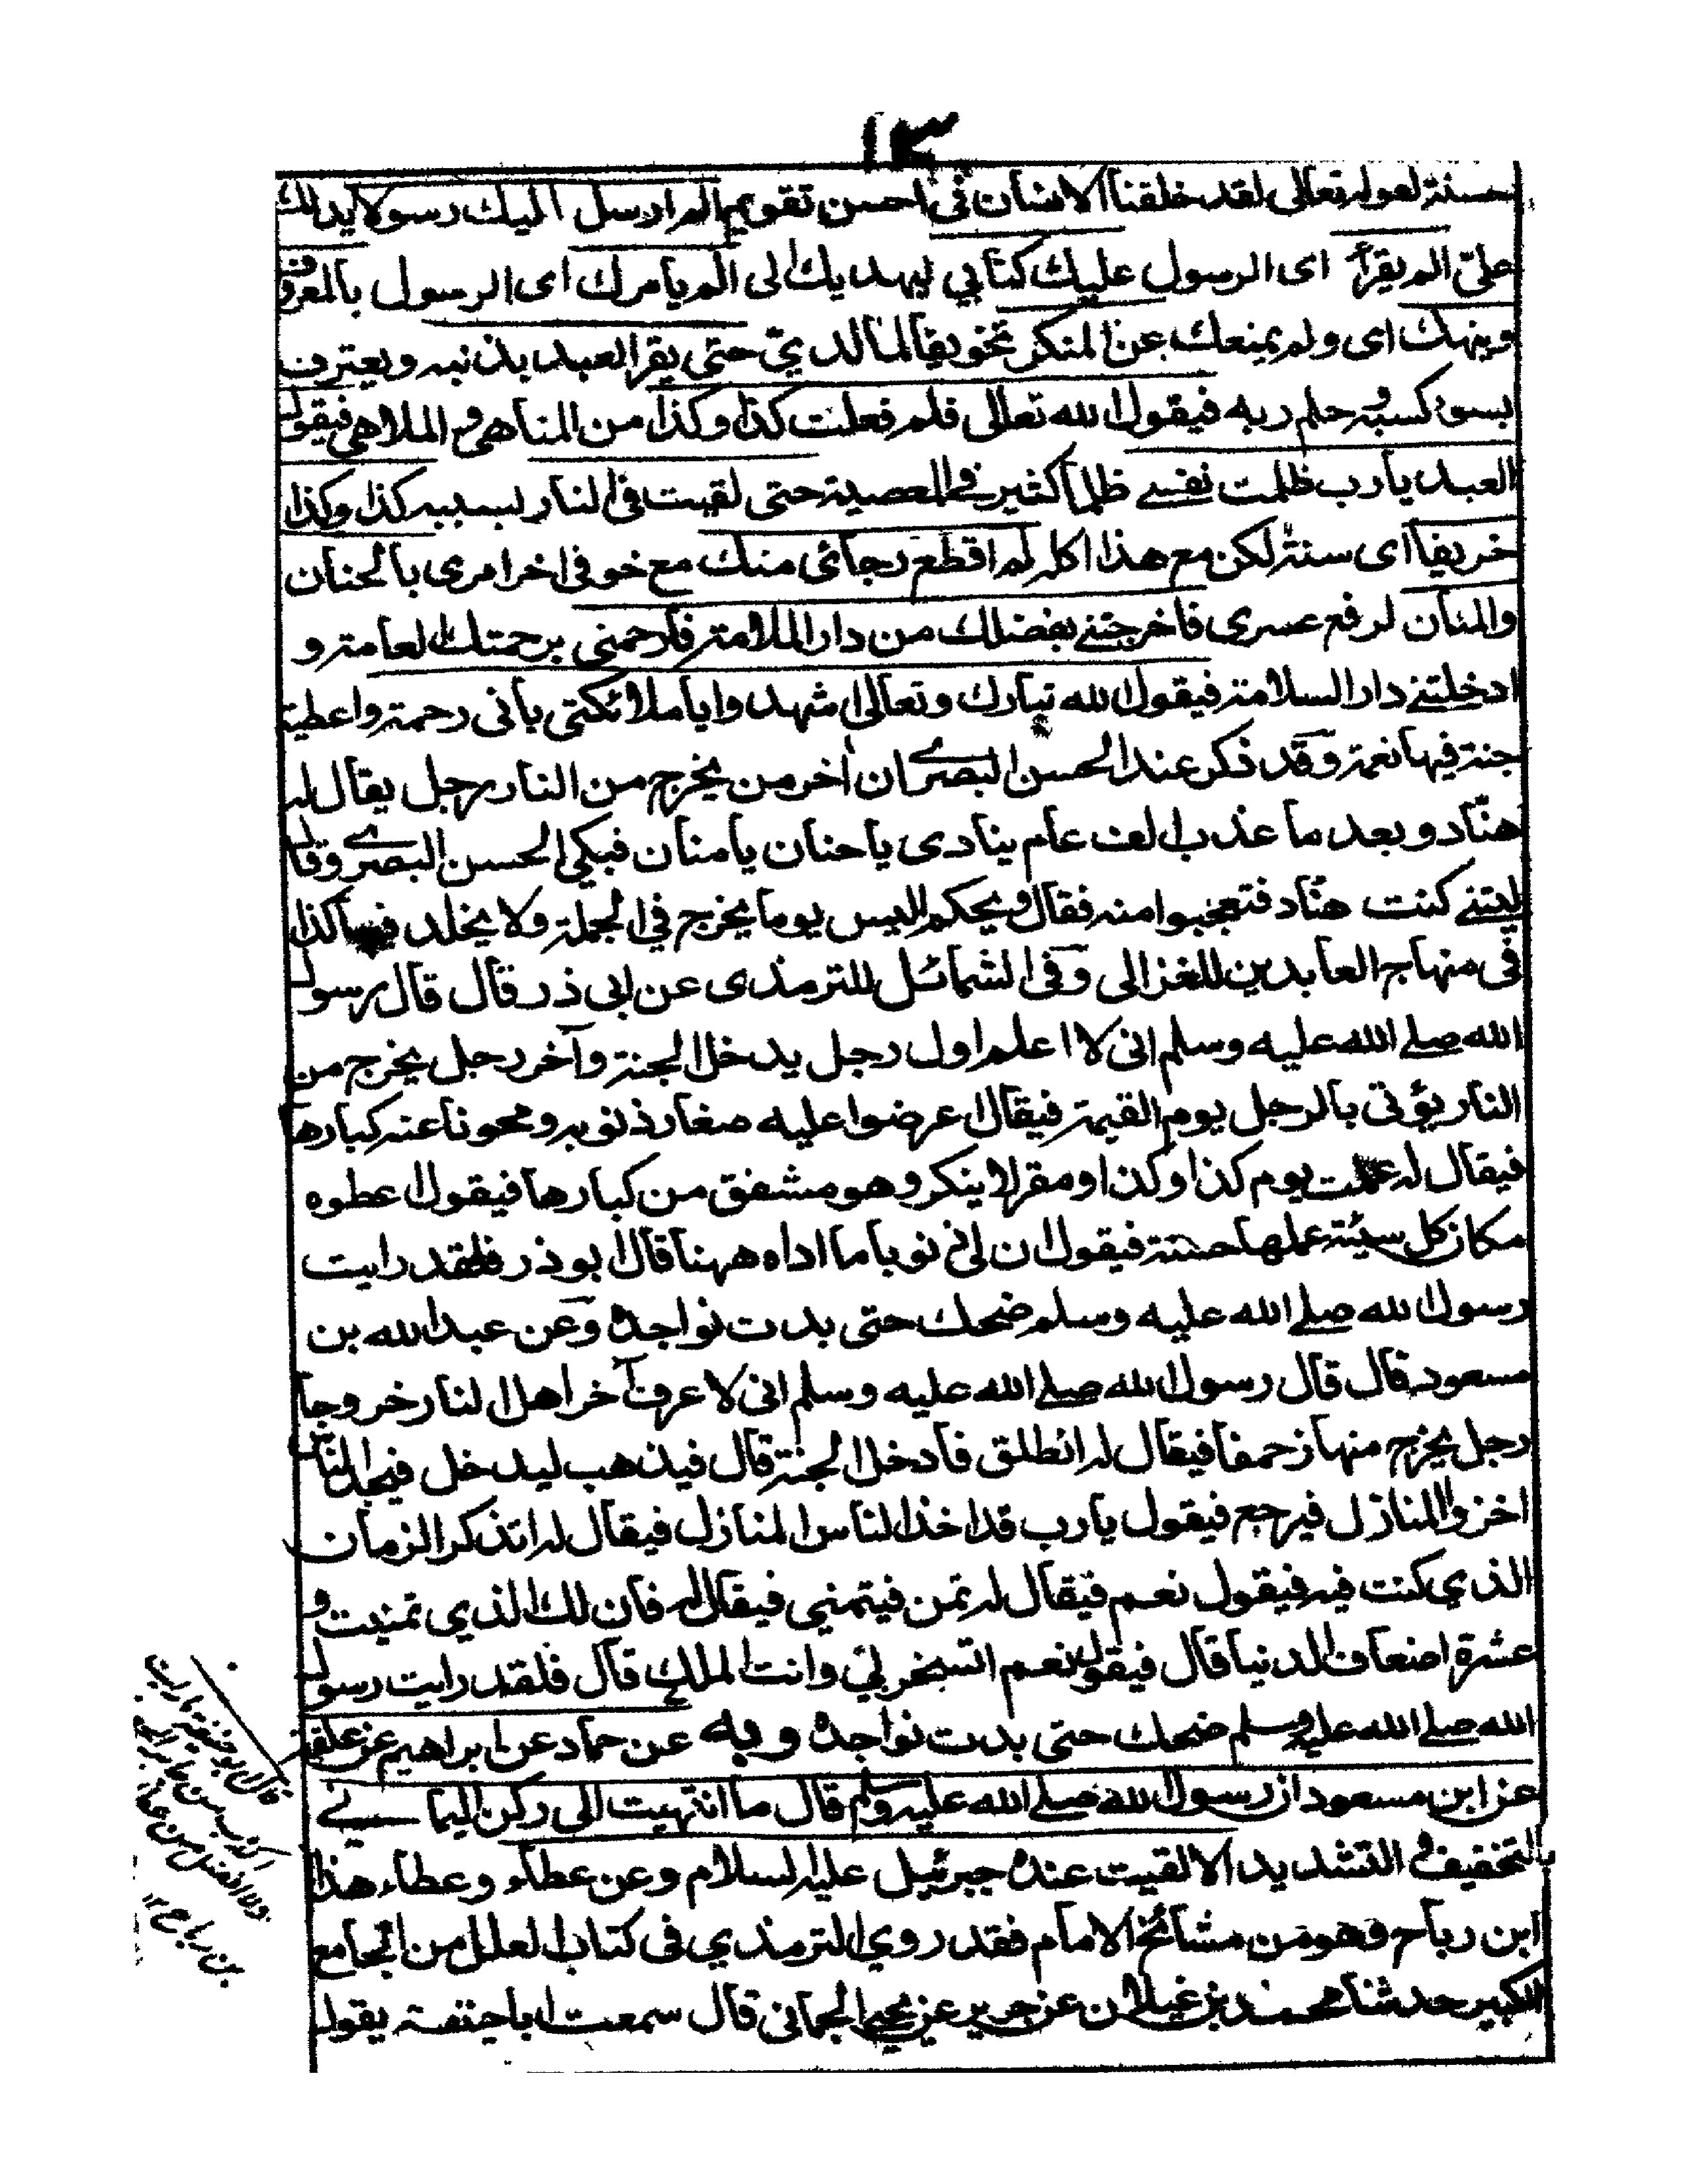 ١٣
حسنة لقوله تعالى لقد خلقنا الانسان فى احسن تقويم الم ارسل اليك رسولا يدلك
علىّ الم يقرأ اى الرسول عليك كتابي ليهديك الى الم يامرك اى الرسول بالمعروف
وينهك اى ولم يمنعك عن المنكر تخويفا لما لديّ حتى يقر العبد بذنبه ويعترف
بسوء كسبه و حلم ربه فيقول الله تعالى فلم فعلت كذا وكذا من المناهى و الملاهى فيقول
العبد يارب ظلمت نفسے ظلما كثيرا فے المعصية حتى لقيت فى النار بسببه كذا وكذا
خريفا اى سنة لكن مع هذا كله لم اقطع رجائى منك مع خوفى اخر امرى يا لحنان
والمنان لرفع عسرى فاخرجتنے بفضلك من دار الملامة فارحمنى برحمتك العامة و
ادخلتنے دار السلامة فيقول الله تبارك وتعالى اشهدوا ياملائكتى بانى رحمته واعطيته
جنة فيها نعمة وقد ذكر عند الحسن البصرے ان اخر من يخرج من النار رجل يقال له
هنّاد وبعد ما عذب الف عام ينادى يا حنان يا منان فبكى الحسن البصرے وقال
ليتنے كنت هنّاد فتعجبوا منه فقال ويحكم اليس يوما يخرج فى الجملة ولا يخلد فيها كذا
فى منهاج العابدين للغزالى وفى الشمائل للترمذى عن ابى ذر قال قال رسول
الله صلے الله عليه وسلم انى لا اعلم اول رجل يدخل الجنة وآخر رجل يخرج من
النار يؤتى بالرجل يوم القيمة فيقال اعرضوا عليه صغار ذنوبه ومحونا عنه كبارها
فيقال له عملت يوم كذا وكذا ومقر لا ينكر وهو مشفق من كبارها فيقول اعطوه
مكان كل سيئة عملها حسنة فيقول ان لى ذنوبا ما اداه ههنا قال ابوذر فلقد رايت
رسول الله صلے الله عليه وسلم ضحك حتى بدت نواجده وعن عبد الله بن
مسعود قال قال رسول الله صلے الله عليه وسلم انى لاعرف آخر اهل النار خروجا
رجل يخرج منها زحفا فيقال له انطلق فادخل الجنة قال فيذهب ليدخل فيجد الناس
اخذوا المنازل فيرجع فيقول يارب قد اخذ الناس المنازل فيقال له اتذكر الزمان
الذي كنت فيه فيقول نعم فيقال له تمن فيتمنى فيقال له فان لك الذي تمنيت و
عشرة اضعاف الدنيا قال فيقول نعم اتسخر بي وانت الملك قال فلقد رايت رسول
الله صلے الله عليه وسلم ضحك حتى بدت نواجده وبه عن حماد عن ابراهيم عن علقمة
عن ابن مسعود ان رسول الله صلے الله عليه وسلم قال ما انتهيت الى ركن اليمانے
بالتخفيف و التشديد الا لقيت عنده جبرئيل عليه السلام وعن عطاء وعطاء هذا
ابن رباح وهو من مشائخ الامام فقد روي الترمذي فى كتاب العلل من الجامع
الكبير حدثنا محمد بن غيلان عن جرير عن يحيى الحمانى قال سمعت ابا حنيفة يقول
قال ابو حنيفة ما رايت
اكذب من جابر الجعفى
ولا افضل من عطاء
بن رباح ١٢